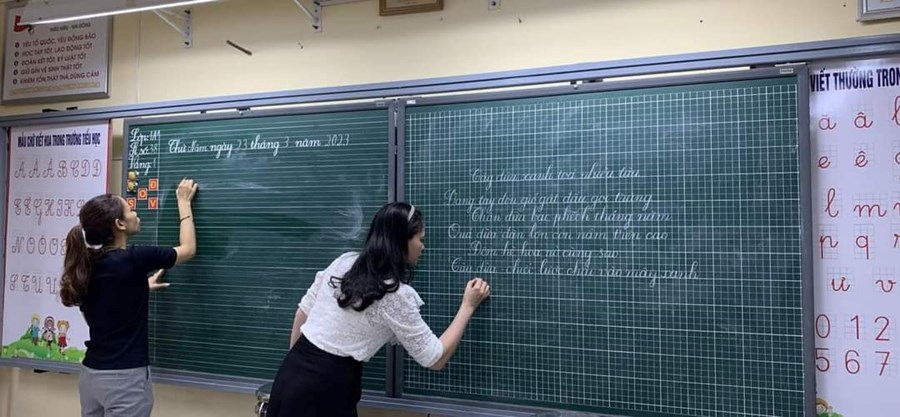 THIẾU NIÊN - NHI ĐỒNG
1 YÊU TỔ QUỐC, YÊU ĐỒNG BÀO
2 HỌC TẬP TỐT, LAO ĐỘNG TỐT
3 ĐOÀN KẾT TỐT, KỶ LUẬT TỐT
4 GIỮ GÌN VỆ SINH THẬT TỐT
5 KHIÊM TỐN, THẬT THÀ, DŨNG CẢM
MẪU CHỮ VIẾT HOA TRONG TRƯỜNG TIỂU HỌC
A Ă Â B C D Đ
E Ê G H I K
N O Ô Ơ
S T U Ư
Lớp: 1A1
Sĩ số: 38
Vắng: 1
Thứ Năm ngày 23 tháng 3 năm 2023
Đ
S O V
Cây dừa xanh toả nhiều tàu
Dang tay đón gió gật đầu gọi trăng
Thân dừa bạc phếch tháng năm
Quả dừa đàn lợn con nằm trên cao
Đêm hè hoa nở cùng sao
Tàu dừa chiếc lược chải vào mây xanh
VIẾT THƯỜNG TRON
ă â b
e ê
l m
p q r
ư v
0 1 2
5 6 7